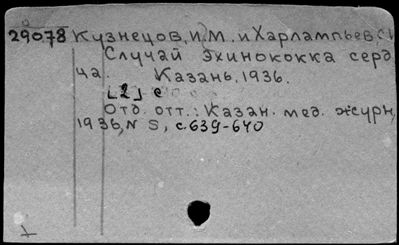 29078 Кузнецов, И.М. и Харлампьев, С.
Случай эхинококка серд
ца. Казань, 1936.
[2] с
Отд. отт.: Казан. мед. журн,
1936, N 5, с. 639-640